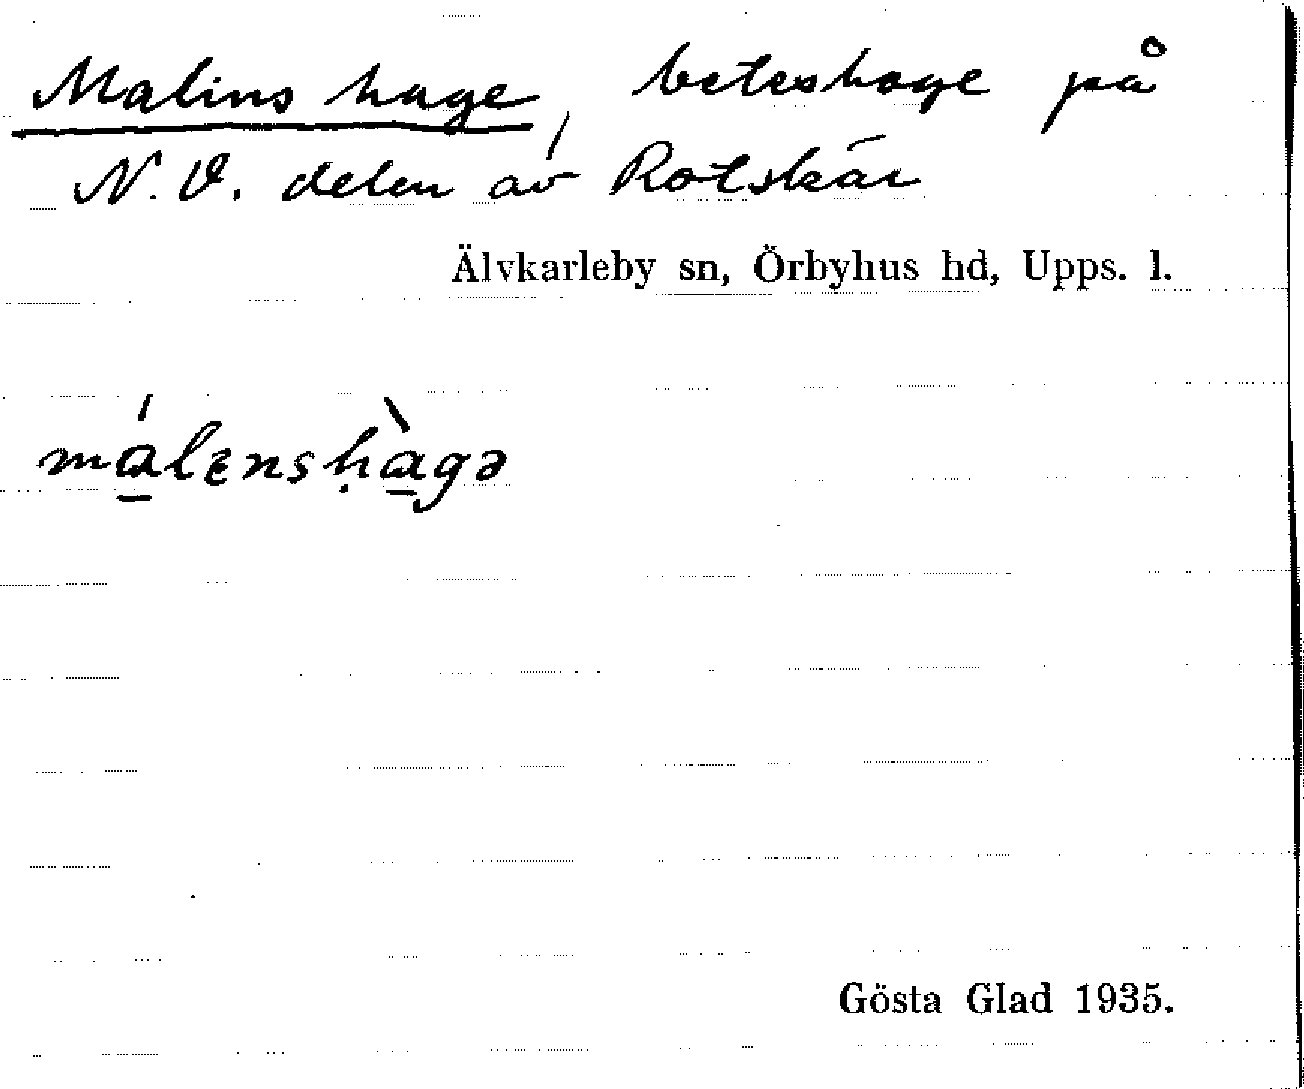 Malins hage, beteshage på
N.V. delen av Rotskär
Älvkarleby sn, Örbyhus hd, Upps. l.
má̱lɛnsḥà̱gə
Gösta Glad 1935.